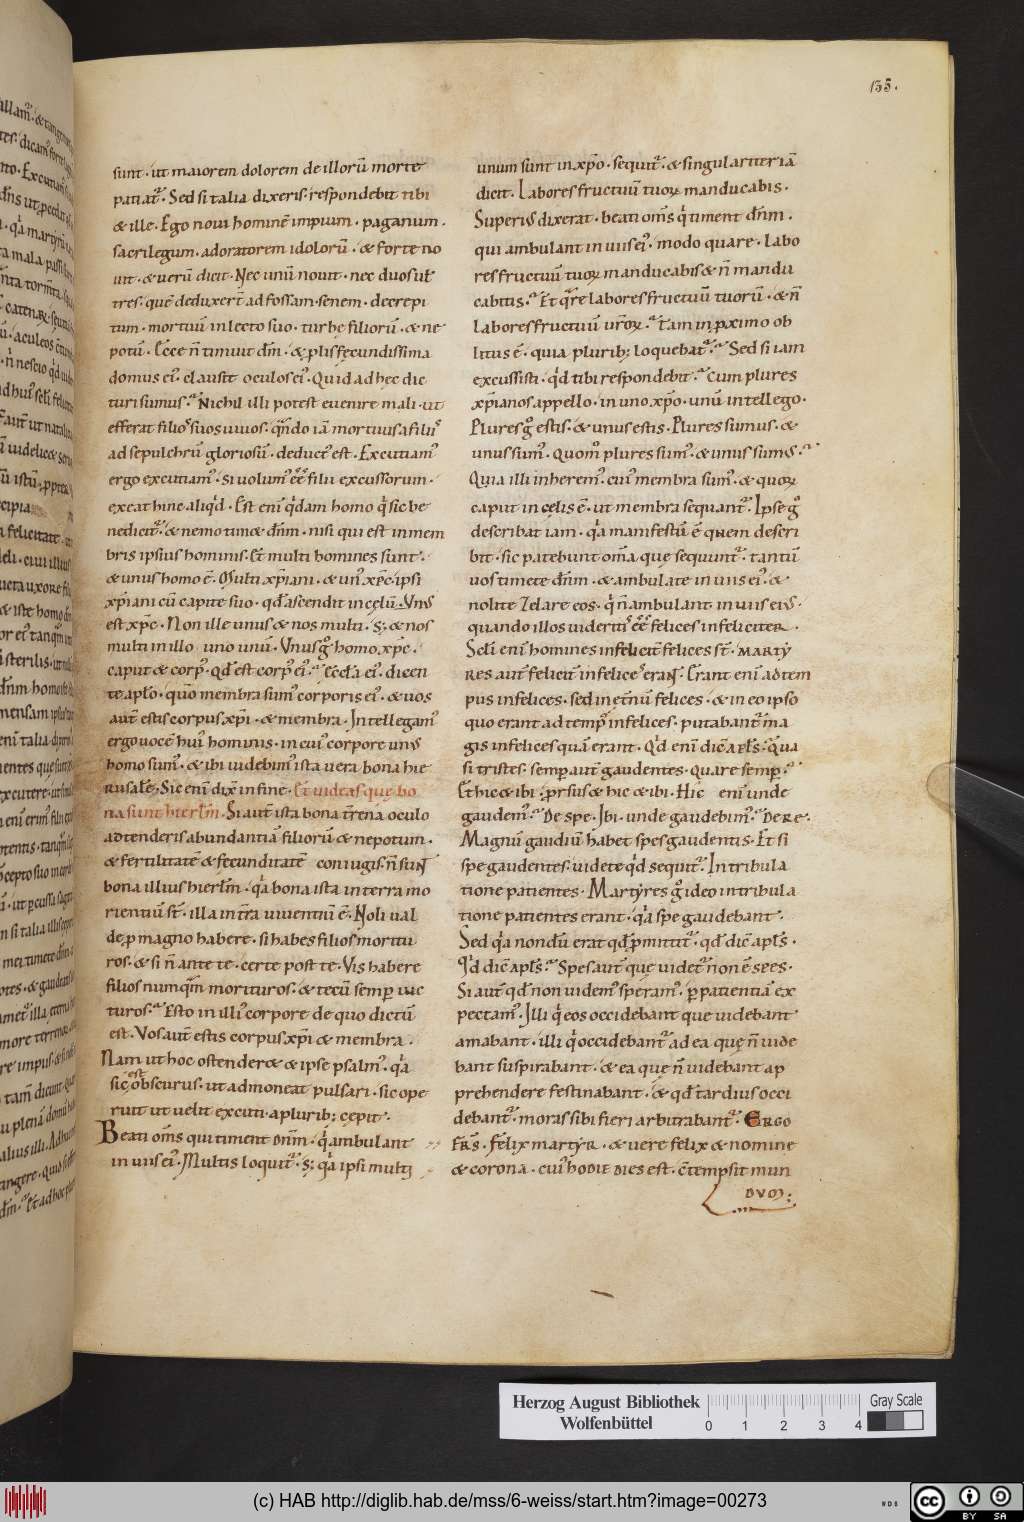 135.
sunt · ut maiorem dolorem de illorū morte
patiat᷑ · Sed si talia dixeris · respondebit tibi
& ille · Ego novi hominē impium · paganum ·
sacrilegum · adoratorem idolorū · & forte no
uit · & uerū dicit · Nec unū nouit · nec duos uł
tres · que deduxer̄t ad fossam · senem · decrepi
tum · mortuū in lecto suo · turbę filiorū · & ne
potū · Ecce n̄ timuit dm̄ · & plis fecundissima
domus ei᾽ · clausit oculos ei᾽ · Quid ad hec dic
turi sumus · Nichil illi potest euenire mali · ut
efferat filios suos uiuos · qn̄do iā mortuus a filiis
ad sepulchrū gloriosū · deduct᾽ est · Excutiam᾽
ergo excutiam᾽ · si uolum᾽ ēē filii excussorum ·
exeat hinc aliqd · Est eni qdam homo q sic be
nedicit᷑ · & nemo tim& dn̄m · nisi qui est in mem
bris ipsius hominis · Et multi homines sunt ·
& unus homo ē · Multi xp̄iani · & un᾽ xp̄c · ipsi
xp̄iani cū capite suo · qd ascendit in cęlū · Vnus
est xp̄c · Non ille unus & nos multi · s; & nos
multi in illo uno unū · Vnus g homo xp̄c ·
caput & corp᾽ · Qd est corp᾽ ei᾽ · Ęccła ei᾽ · dicen
te apło · quō membra sum᾽ corporis ei᾽ · & uos
aut̄ estis corpus xp̄i · & membra · Intellegam᾽
ergo uocē hui᾽ hominis · in cui᾽ corpore unus
homo sum᾽ · & ibi uidebim᾽ ista uera bona hie
rusałē · Sic eni dix̄ in fine · Et uideas quę bo
na sunt hierłm · Si aut̄ ista bona t̄rena oculo
adtenderis abundantiā filiorū & nepotum ·
& fertilitatē & fecunditatē coniugis · n̄ sunt
bona illius hierłm · qa bona ista in terra mo
rientiū st̄ · illa in t̄ra uiuentiū ē · Noli ual
de p magno habere · si habes filios moritu
ros · & si n̄ ante te · certe post te · Vis habere
filios numqm morituros · & tecū semp uic
turos · Esto in illi᾽ corpore de quo dictū
est · Vos aut̄ estis corpus xp̄i & membra ·
Nam ut hoc ostender& & ipse psalm᾽ · qa
sic est obscurus · ut admoneat pulsari · sic ope
ruit ut uelit excuti · a plurib; cępit ·
Beati om̄s qui timent dn̄m · q ambulant
in uiis ei᾽ · Multis loquit᷑ · s; qa ipsi multi
unum sunt in xp̄o · sequit᷑ · & singulariter iā
dicit · Labores fructuū tuoꝝ manducabis ·
Superius dixerat · beati om̄s q timent dn̄m ·
qui ambulant in uiis ei᾽ · modo quare · labo
res fructuū tuoꝝ manducabis & n̄ mandu
cabitis · Et qre labores fructuū tuorū · & n̄
labores fructuū ur̄oꝝ · tam in pximo ob
litus ē · quia plurib; loquebat᷑ · Sed si iam
excussisti · qd tibi respondebit · Cum plures
xp̄ianos appello · in uno xp̄o · unū intellego ·
Plures g estis · & unus estis · Plures sumus · &
unus sum᾽ · Quom̄ plures sum᾽ · & unus sumus ·
Quia illi inherem᾽ · cui᾽ membra sum᾽ · & quoꝝ
caput in cęlis ē · ut membra sequant᷑ · Ipse g
describat iam · qa manifestū ē quem descri
bit · sic patebunt om̄a que sequunt᷑ · tantū
uos timete dn̄m · & ambulate in uiis ei᾽ · &
nolite zelare eos · q n̄ ambulant in uiis eius ·
quando illos uideritis ēē felices infeliciter ·
Scłi eni homines infelicit felices st̄ · marty
res aut̄ felicit infelices erant · Erant eni ad tem
pus infelices · sed in et̄nū felices · & in eo ipso
quo erant ad temp᾽ infelices · putabant᷑ ma
gis infelices quā erant · Qd eni dic̄ apłs · Qua
si tristes · semp aut̄ gaudentes · Quare semp ·
Et hic & ibi · prsus & hic & ibi · Hic eni unde
gaudem᾽ · De spe · Ibi · unde gaudebim᾽ · De re ·
Magnū gaudiū habet spes gaudentis · Et si
spe gaudentes · uidete qd sequit᷑ · In tribula
tione patientes · Martyres g ideo in tribula
tione patientes erant · qa spe gaudebant ·
Sed qa nondū erat qd pmittit᷑ · qd dic̄ apłs ·
Qd dic̄ apłs · Spes aut̄ que uidet᷑ n̄on ē spes ·
Si aut̄ qd non uidem᾽ speram᾽ · p patientiā ex
pectam᾽ · Illi q eos occidebant que uidebant
amabant · illi q occidebant᷑ ad ea quę n̄ uide
bant suspirabant · & ea que n̄ uidebant ap
prehendere festinabant · & qd tardius occi
debant᷑ · moras sibi fieri arbitrabant᷑ · Ergo
fr̄s · felix martyr · & uere felix & nomine
& corona · cui᾽ hodie dies est · c̄tempsit mun
dum ;
Herzog August Bibliothek
Wolfenbüttel
0 1 2 3 4
Gray Scale
(c) HAB http://diglib.hab.de/mss/6-weiss/start.htm?image=00273
WDB
cc
BY SA